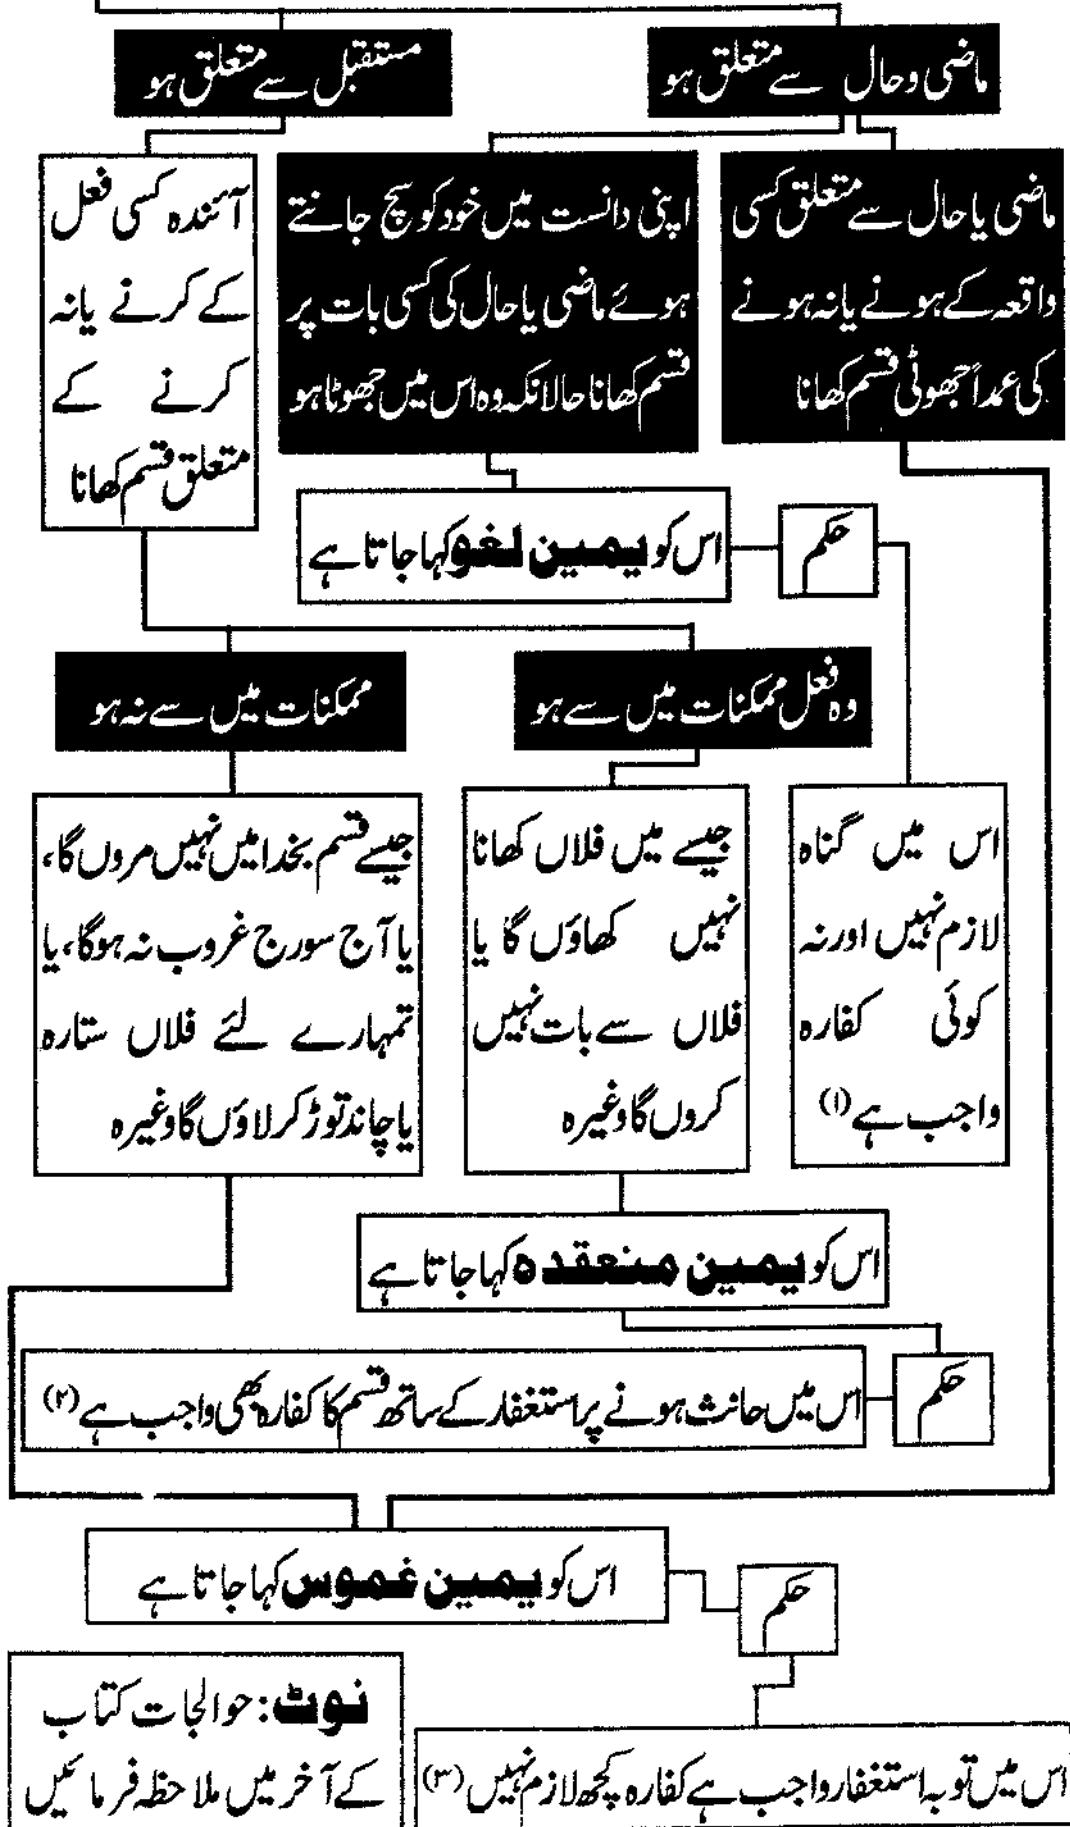 ماضی وحال سے متعلق ہو
مستقبل سے متعلق ہو
ماضی یا حال سے متعلق کسی
واقعہ کے ہونے یا نہ ہونے
کی عمداً جھوٹی قسم کھانا
اپنی دانست میں خود کو سچ جانتے
ہوئے ماضی یا حال کی کسی بات پر
قسم کھانا حالانکہ وہ اس میں جھوٹا ہو
آئندہ کسی فعل
کے کرنے یا نہ
کرنے کے
متعلق قسم کھانا
حکم
اس کو یمین لغو کہا جاتا ہے
وہ فعل ممکنات میں سے ہو
ممکنات میں سے نہ ہو
اس میں گناہ
لازم نہیں اور نہ
کوئی کفارہ
واجب ہے (۱)
جیسے میں فلاں کھانا
نہیں کھاؤں گا یا
فلاں سے بات نہیں
کروں گا وغیرہ
جیسے قسم بخدا میں نہیں مروں گا،
یا آج سورج غروب نہ ہوگا، یا
تمہارے لئے فلاں ستارہ
یا چاند توڑ کر لاؤں گا وغیرہ
اس کو یمین منعقدہ کہا جاتا ہے
حکم
اس میں حانث ہونے پر استغفار کے ساتھ قسم کا کفارہ بھی واجب ہے (۲)
اس کو یمین غموس کہا جاتا ہے
حکم
اس میں توبہ استغفار واجب ہے کفارہ کچھ لازم نہیں (۳)
نوٹ: حوالجات کتاب
کے آخر میں ملاحظہ فرمائیں